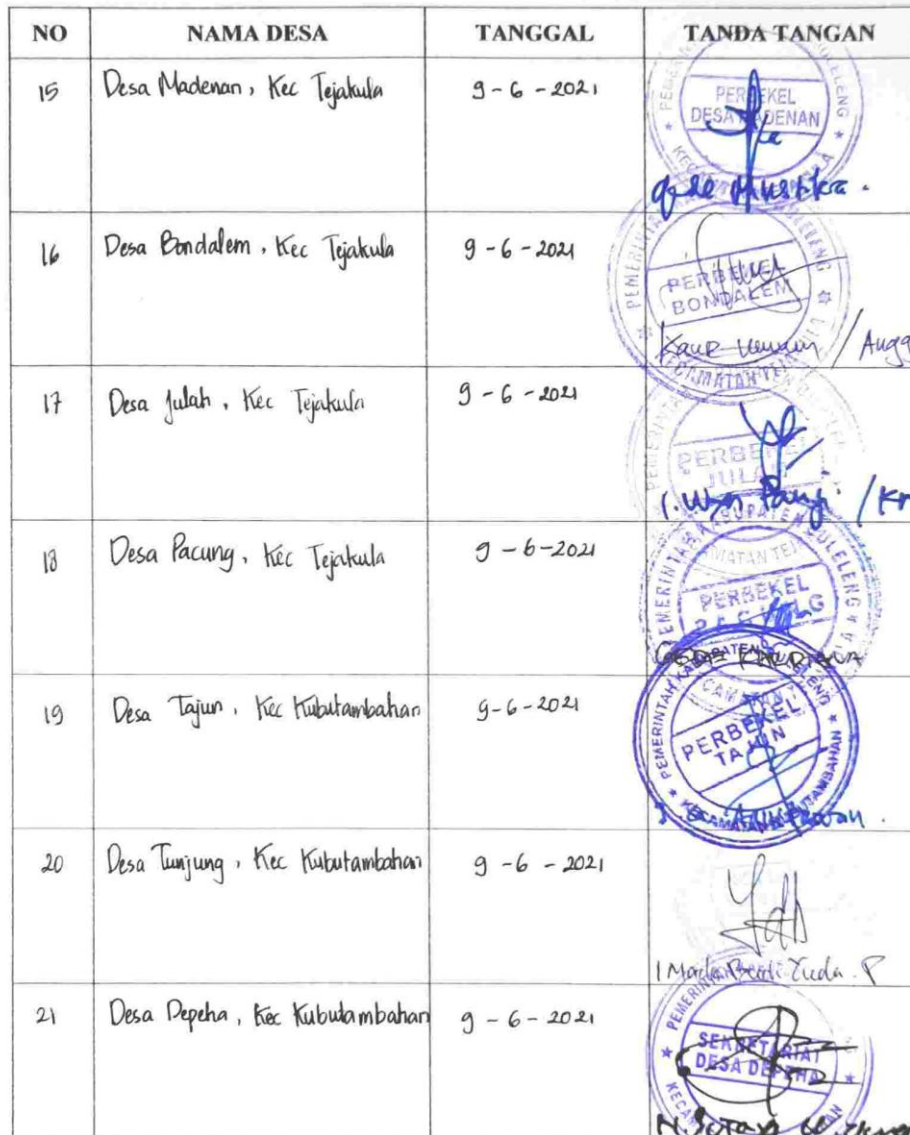 NO NAMA DESA TANGGAL TANDA TANGAN
15 Desa Madenan, Kec Tejakula 9-6-2021
PERBEKEL
DESA MADENAN
16 Desa Bondalem, Kec Tejakula 9-6-2021
PERBEKEL
BONDALEM
17 Desa Julah, Kec Tejakula 9-6-2021
PERBEKEL
JULAH
18 Desa Pacung, Kec Tejakula 9-6-2021
PERBEKEL
19 Desa Tajun, Kec Kubutambahan 9-6-2021
PEMERINTAH KABUPATEN BULELENG
PERBEKEL
TAJUN
KECAMATAN KUBUTAMBAHAN
20 Desa Tunjung, Kec Kubutambahan 9-6-2021
I Made Yuda. P
21 Desa Depeha, Kec Kubutambahan 9-6-2021
SEKRETARIAT
DESA DEPEHA